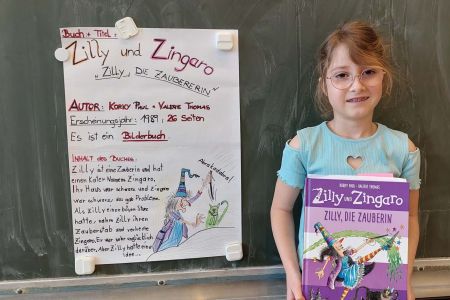 Buch + Titel:
Zilly und Zingaro
"Zilly, DIE ZAUBERERIN"
AUTOR: KORKY PAUL + VALERIE THOMAS
Erscheinungsjahr: 1989, 26 Seiten
Es ist ein Bilderbuch.
INHALT DES BUCHES:
Zilly ist eine Zauberin und hat
einen Kater Namens Zingaro.
Ihr Haus war schwarz und Zingaro
war schwarz, das gab Probleme.
Als Zilly einen bösen
hatte, nahm Zilly ihren
Zauberstab und verhexte
Zingaro. Er war sehr unglücklich
darüber. Aber Zilly hatte eine
Idee...
Abrakadabra!
KORKY PAUL · VALERIE THOMAS
Zilly UND Zingaro
ZILLY, DIE ZAUBERIN